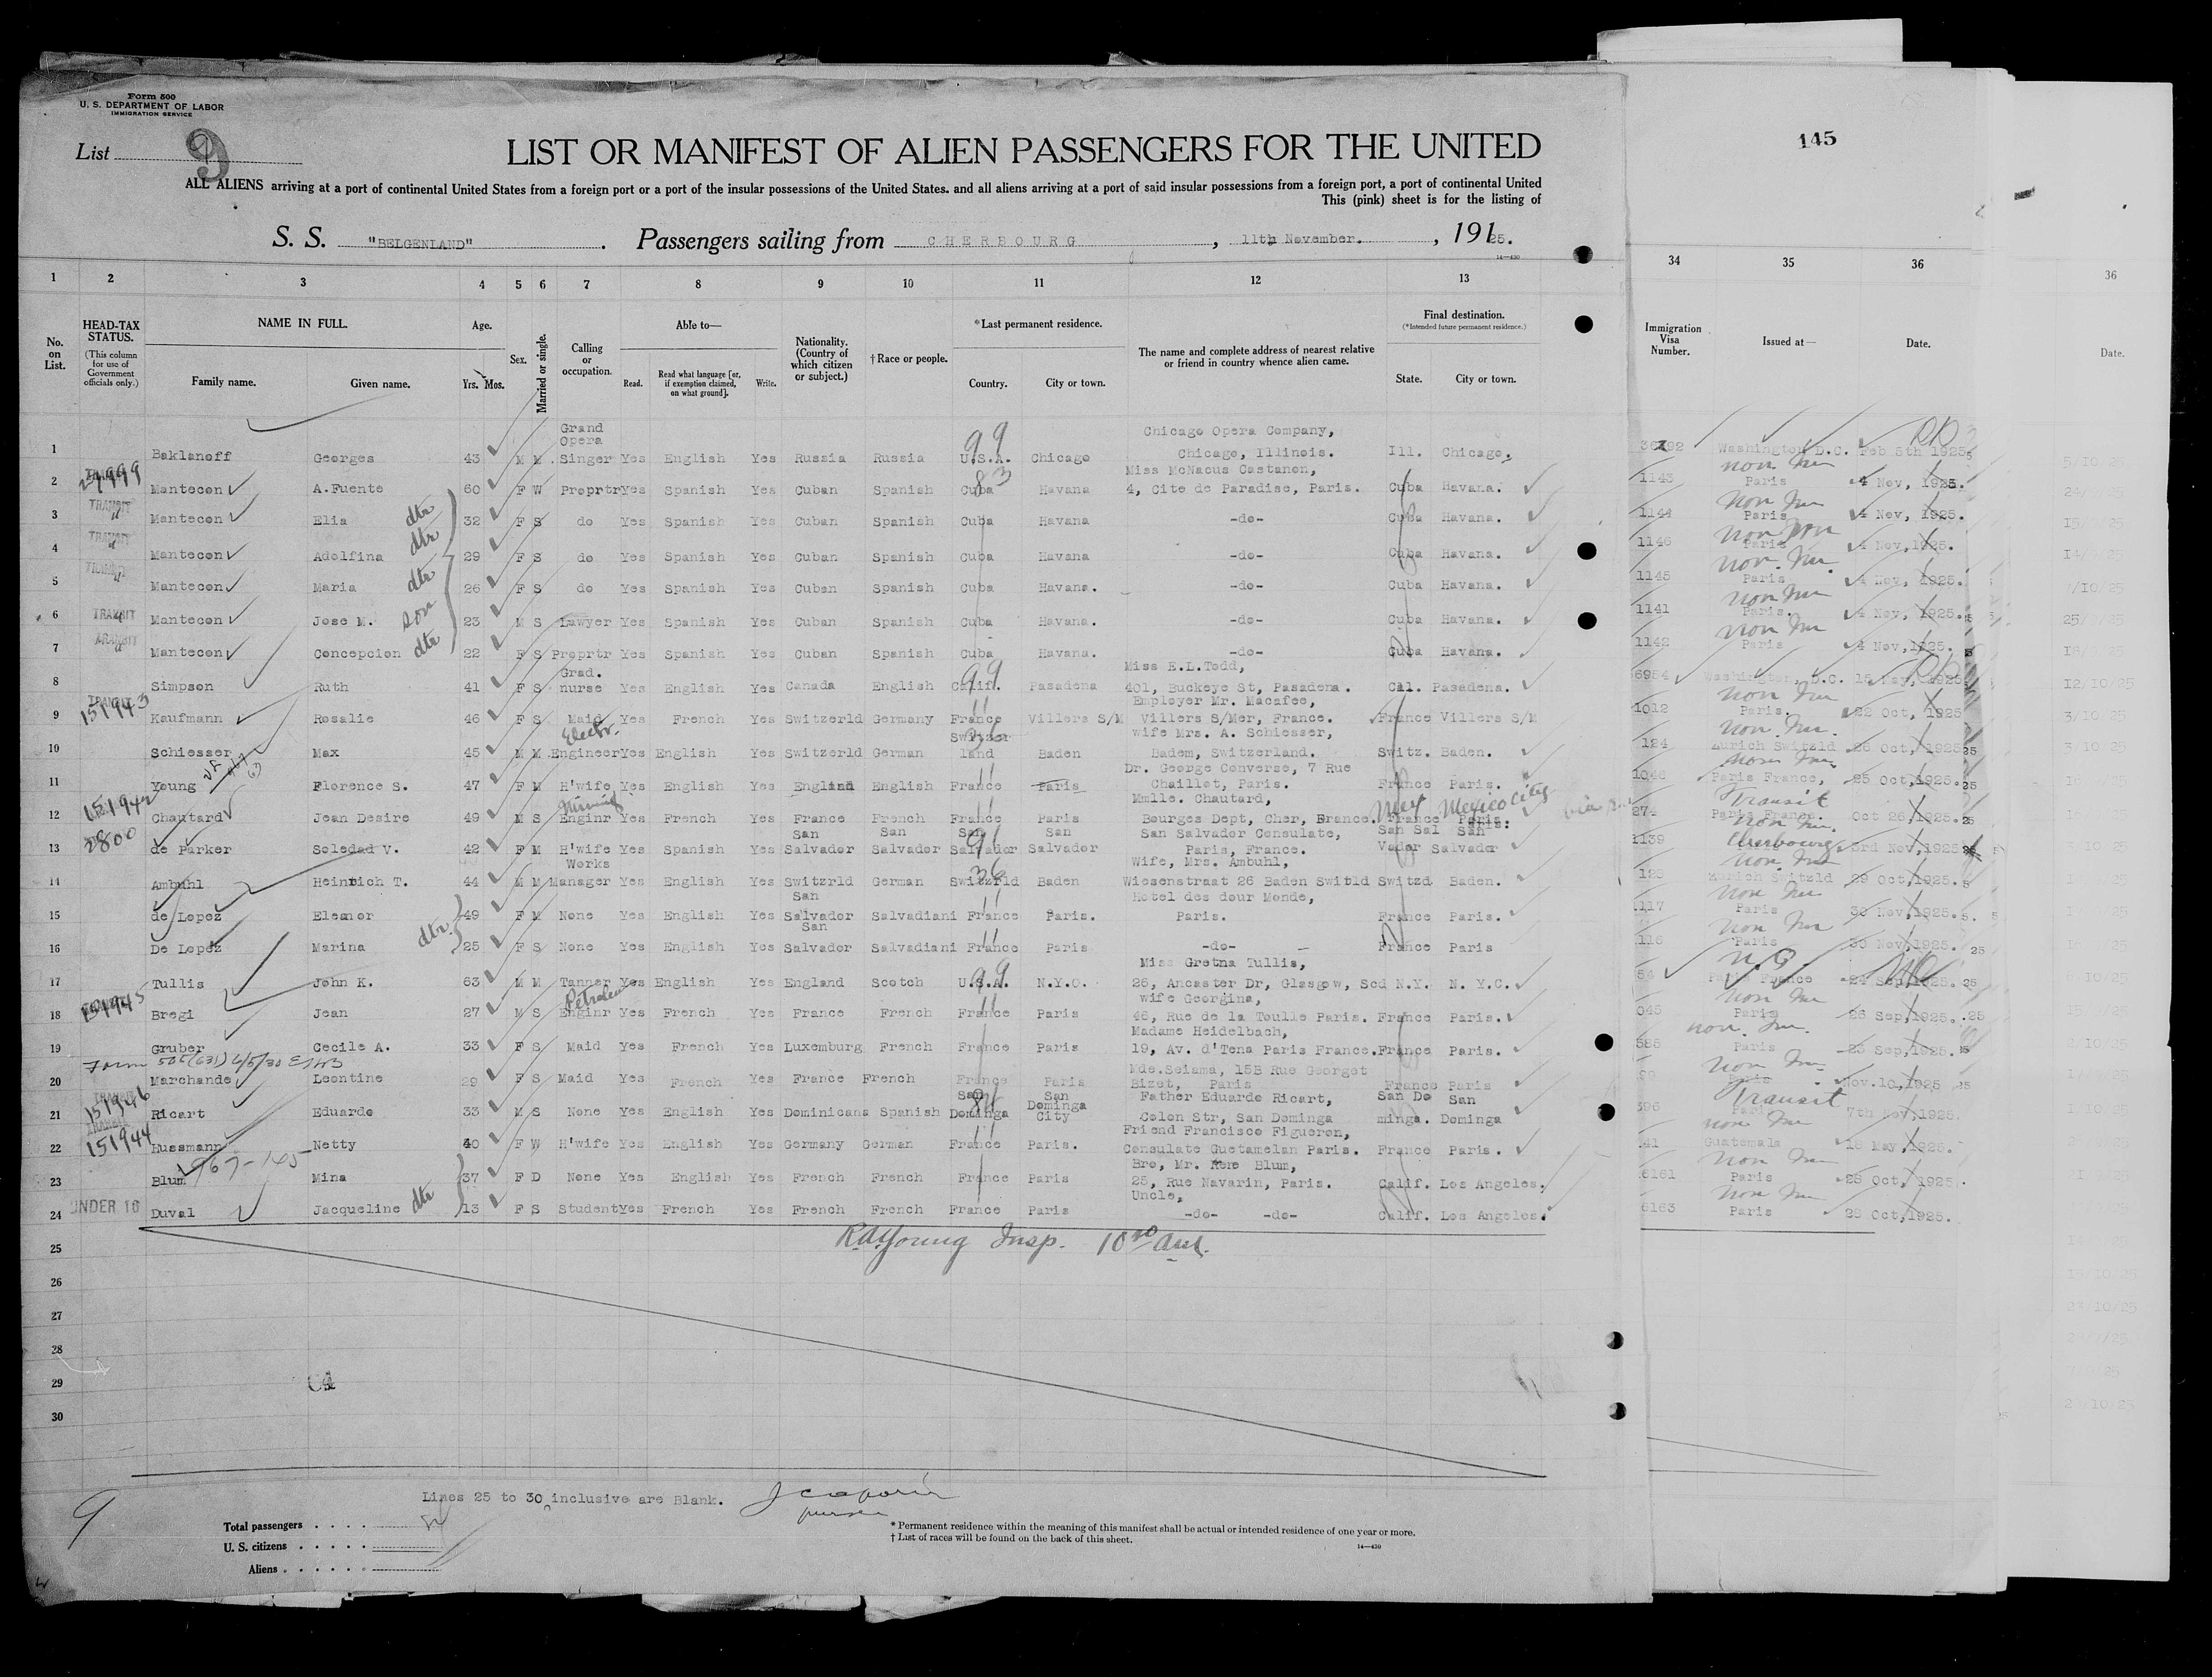 Form 500
U. S. DEPARTMENT OF LABOR
IMMIGRATION SERVICE
145
List 9
LIST OR MANIFEST OF ALIEN PASSENGERS FOR THE UNITED
ALL ALIENS arriving at a port of continental United States from a foreign port or a port of the insular possessions of the United States. and all aliens arriving at a port of said insular possessions from a foreign port, a port of continental United
This (pink) sheet is for the listing of
S. S. "BELGENLAND" . Passengers sailing from CHERBOURG , 11th November. , 1925.
14—430
1 2 3 4 5 6 7 8 9 10 11 12 13 34 35 36 36
No. on List.
HEAD-TAX STATUS.
(This column for use of Government officials only.)
NAME IN FULL.
Family name. Given name.
Age.
Yrs. Mos.
Sex.
Married or single.
Calling or occupation.
Able to—
Read. Read what language [or, if exemption claimed, on what ground]. Write.
Nationality. (Country of which citizen or subject.)
†Race or people.
*Last permanent residence.
Country. City or town.
The name and complete address of nearest relative or friend in country whence alien came.
Final destination.
(*Intended future permanent residence.)
State. City or town.
Immigration Visa Number.
Issued at—
Date.
Date.
1 Baklanoff Georges 43 M M Grand Opera Singer Yes English Yes Russia Russia U.S.A. 99 Chicago Chicago Opera Company, Chicago, Illinois. Ill. Chicago. Washington D.C. Feb 5th 1925
2 Mantecon A.Fuente 60 F W Proprtr Yes Spanish Yes Cuban Spanish Cuba 83 Havana Miss McNacus Castanon, 4, Cite de Paradise, Paris. Cuba Havana. 1143 Paris 4 Nov, 1925.
3 TRANSIT " Mantecon Elia dtr 32 F S do Yes Spanish Yes Cuban Spanish Cuba Havana -do- Cuba Havana. 1144 Non Im Paris 4 Nov, 1925.
4 TRANSIT " Mantecon Adolfina dtr 29 F S do Yes Spanish Yes Cuban Spanish Cuba Havana -do- Cuba Havana. 1146 Paris 4 Nov, 1925.
5 TRANSIT " Mantecon Maria dtr 26 F S do Yes Spanish Yes Cuban Spanish Cuba Havana. -do- Cuba Havana. 1145 Non Im Paris 4 Nov, 1925.
6 TRANSIT " Mantecon Jose M. son 23 M S Lawyer Yes Spanish Yes Cuban Spanish Cuba Havana. -do- Cuba Havana. 1141 Non Im Paris. 4 Nov, 1925.
7 TRANSIT " Mantecon Concepcion dtr 22 F S Proprtr Yes Spanish Yes Cuban Spanish Cuba Havana. -do- Cuba Havana. 1142 Non Im Paris 4 Nov, 1925.
8 Simpson Ruth 41 F S Grad. nurse Yes English Yes Canada English Calif. 99 Pasadena Miss E.L.Todd, 401, Buckeye St, Pasadena. Cal. Pasadena. Washington, D.C.
9 TRANSIT 151943 Kaufmann Rosalie 46 F S Maid Yes French Yes Switzerld Germany France Villers S/M Employer Mr. Macafee, Villers S/Mer, France. France Villers S/M 1012 Non Im Paris. 22 Oct, 1925
10 Schiesser Max 45 M M Electr. Engineer Yes English Yes Switzerld German Switzerland 36 Baden wife Mrs. A. Schiesser, Badem, Switzerland. Switz. Baden. 124 Non Im. Zurich Switzld 26 Oct, 1925
11 Young Florence S. 47 F M H'wife Yes English Yes England English France Paris Dr. George Converse, 7 Rue Chaillet, Paris. France Paris. 1046 Non Im Paris France, 25 Oct, 1925.
12 Chautard Jean Desire 49 M S Mining Enginr Yes French Yes France French France Paris Mmlle. Chautard, Bourges Dept, Cher, France. France Paris. Mex Mexico City 274 Transit Paris France. Oct 26, 1925.
13 2800 de Parker Soledad V. 42 F M H'wife Yes Spanish Yes San Salvador San Salvador San Salvador San Salvador San Salvador Consulate, Paris, France. San Sal Vador San Salvador 1139 Non Im. Cherbourg 3rd Nov, 1925
14 Ambuhl Heinrich T. 44 M M Works Manager Yes English Yes Switzrld German Switzrld 36 Baden Wife, Mrs. Ambuhl, Wiesenstraat 26 Baden Switld Switzd Baden. Non Im Zurich Switzld 29 Oct, 1925.
15 de Lopez Eleanor 49 F M None Yes English Yes San Salvador Salvadiani France Paris. Hotel des dour Monde, Paris. France Paris. 1117 Non Im Paris 30 Nov, 1925.
16 De Lopez Marina dtr. 25 F S None Yes English Yes San Salvador Salvadiani France Paris -do- France Paris 116 Non Im Paris 30 Nov, 1925.
17 Tullis John K. 63 M M Tanner Yes English Yes England Scotch U.S.A. 99 N.Y.C. Miss Gretna Tullis, 25, Ancaster Dr, Glasgow, Scd N.Y. N. Y.C. Paris France 24 Sep, 1925.
18 151945 Bregi Jean 27 M S Petroleum Enginr Yes French Yes France French France Paris wife Georgina, 46, Rue de la Toulle Paris. France Paris. 045 Non Im Paris 26 Sep, 1925.
19 Gruber Cecile A. 33 F S Maid Yes French Yes Luxemburg French France Paris Madame Heidelbach, 19, Av. d'Tena Paris France. France Paris. 585 Non. Im. Paris 23 Sep, 1925.
Form 505
20 Marchande Leontine 29 F S Maid Yes French Yes France French France Paris Mde.Seiama, 15B Rue Georget Bizet, Paris France Paris Non Im Nov.10, 1925
21 TRANSIT 151946 Ricart Eduardo 33 M S None Yes English Yes Dominicana Spanish San Dominga San Dominga City Father Eduarde Ricart, Colon Str, San Dominga San Do minga. San Dominga 396 Transit Paris 7th Nov, 1925.
22 TRANSIT 151944 Russmann Netty 40 F W H'wife Yes English Yes Germany German France Paris. Friend Francisco Figueron, Consulate Guetamelan Paris. France Paris. 41 Non Im Guatemala 18 May, 1925.
23 Blum Mina 37 F D None Yes English Yes French French France Paris Bro, Mr. Rene Blum, 25, Rue Navarin, Paris. Calif. Los Angeles. 6161 Non Im Paris 28 Oct, 1925.
24 UNDER 16 Duval Jacqueline dtr 13 F S Student Yes French Yes French French France Paris Uncle, -do- -do- Calif. Los Angeles. 6163 Non Im Paris 28 Oct, 1925.
25
R.A. Young Insp.
26
27
28
29
30
Lines 25 to 30 inclusive are Blank.
purser
9
Total passengers . . . .
U. S. citizens . . . . .
Aliens . . . . . .
* Permanent residence within the meaning of this manifest shall be actual or intended residence of one year or more.
† List of races will be found on the back of this sheet.
14—430